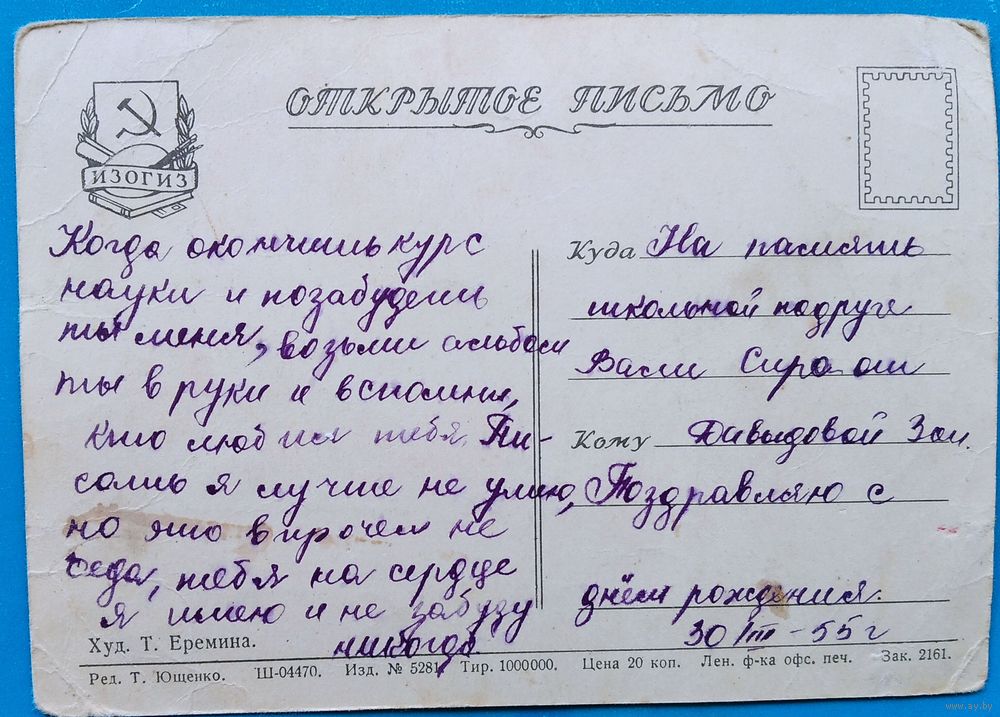 ОТКРЫТОЕ ПИСЬМО
ИЗОГИЗ
Когда окончишь курс
науки и позабудешь
ты меня, возьми альбом
ты в руки и вспомни,
кто любил тебя. Пи-
сать я лучше не умею,
но это впрочем не
беда, тебя на сердце
я имею и не забуду
никогда.
Куда На память
школьной подруге
Вали Сирот
Кому Давыдовой Зои.
Поздравляю с
днём рождения.
30/III - 55 г
Худ. Т. Еремина.
Ред. Т. Ющенко. Ш-04470. Изд. № 5281. Тир. 1000000. Цена 20 коп. Лен. ф-ка офс. печ. Зак. 2161.
www.ay.by